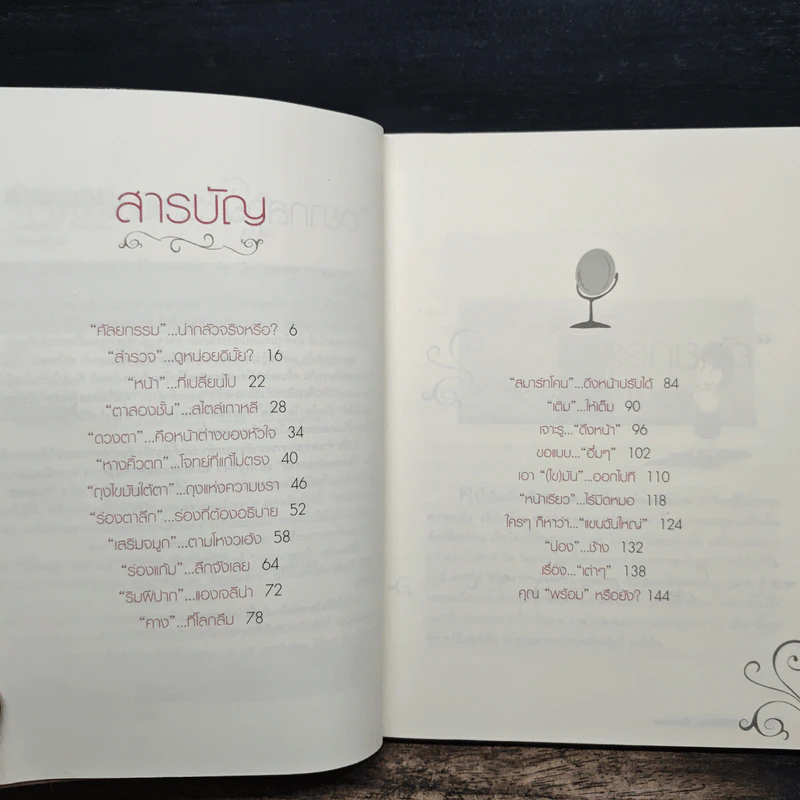 สารบัญ
“ศัลยกรรม”...น่ากลัวจริงหรือ? 6
“สำรวจ”...ดูหน่อยดีมั้ย? 16
“หน้า”...ที่เปลี่ยนไป 22
“ตาสองชั้น”...สไตล์เกาหลี 28
“ดวงตา”...คือหน้าต่างของหัวใจ 34
“หางคิ้วตก”...โจทย์ที่แก้ไม่ตรง 40
“ถุงไขมันใต้ตา”...ถุงแห่งความชรา 46
“ร่องตาลึก”...ร่องที่ต้องอธิบาย 52
“เสริมจมูก”...ตามโหงวเฮ้ง 58
“ร่องแก้ม”...ลึกจังเลย 64
“ริมฝีปาก”...แองเจลีน่า 72
“คาง”...ที่โลกลืม 78
“สมาร์ทโคน”...ดึงหน้าปรับได้ 84
“เติม”...ให้เต็ม 90
เจาะรู...“ดึงหน้า” 96
ขอแบบ...“อึ๋มๆ” 102
เอา “(ไข)มัน”...ออกไปที 110
“หน้าเรียว”...ไร้มีดหมอ 118
ใครๆ ก็หาว่า...“แขนฉันใหญ่” 124
“น่อง”...ช้าง 132
เรื่อง...“เต่าๆ” 138
คุณ “พร้อม” หรือยัง? 144